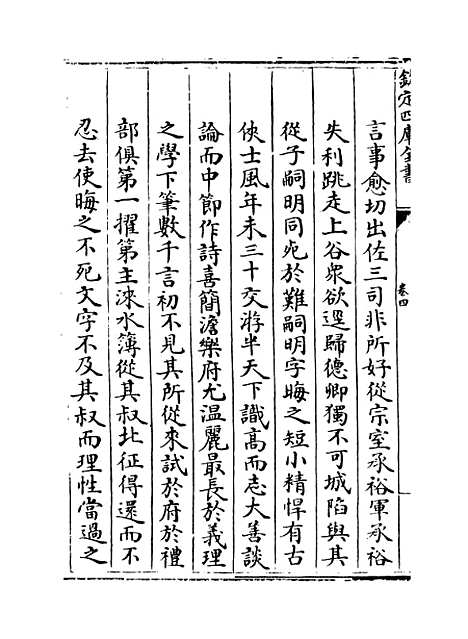 欽定四庫全書
卷四
言事愈切出佐三司非所好從宗室承裕軍承裕
失利跳走上谷衆欲逕歸德卿獨不可城陷與其
從子嗣明同死於難嗣明字晦之短小精悍有古
俠士風年未三十交游半天下識高而志大善談
論而中節作詩喜簡澹樂府尤温麗最長於義理
之學下筆數千言初不見其所從來試於府於禮
部俱第一擢第主淶水簿從其叔北征得還而不
忍去使晦之不死文字不及其叔而理性當過之